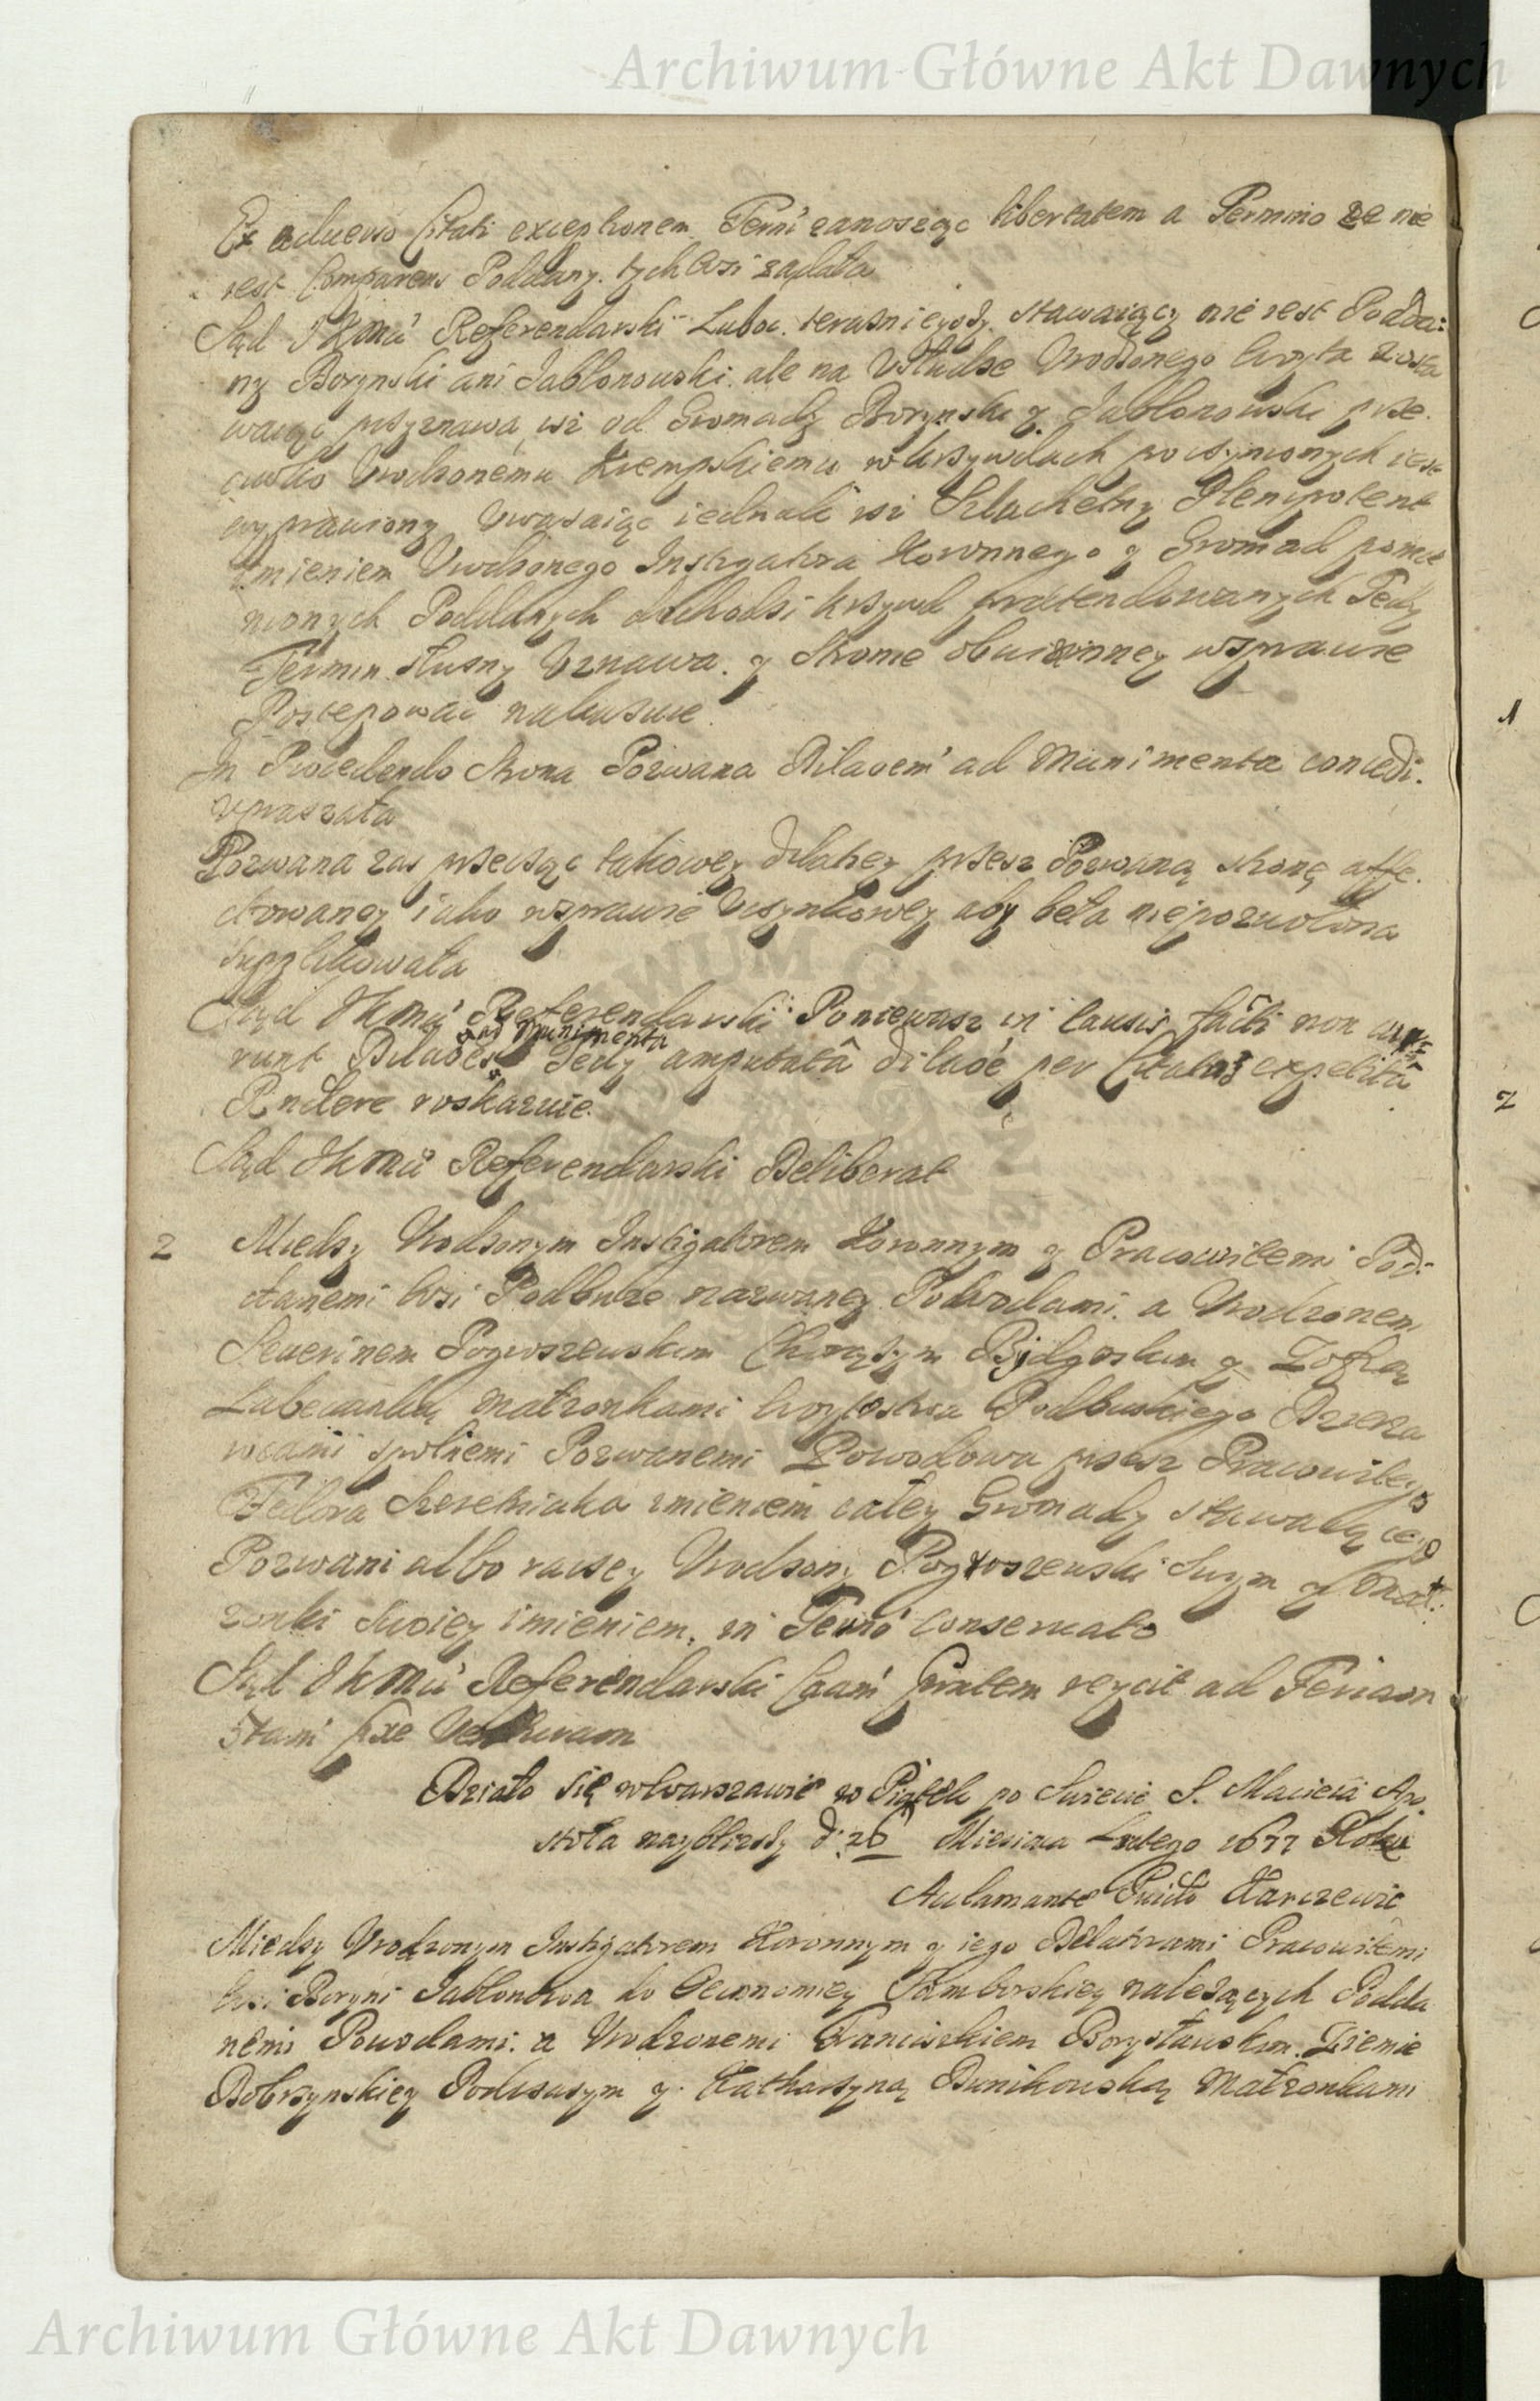 Archiwum Główne Akt Dawnych
Ex adverso Citati exceptionem Termi zanosząc libertatem a Termino że nie
iest Comparens Poddany tych Wsi żądała
Sąd JKMci Referendarski Lubo terasnieyszy stawaiący nie iest Podda:
ny Borynski ani Jablonowski ale na Usłudze Urodzonego
waiąc przyznawa isz od Gromady Borynski y Jablonowski prze
ciwko Urodzonemu Krempskiemu w krzywdach poczynionych iest
wyprawiony Uwazaiąc iednak isz Szlachetny Plenipotent
imieniem Urodzonego Instigatora Koronnego y Gromad pomie
nionych Poddanych dochodzi krzywd praetendowanych Tedy
Termin słuszny Uznawa y Stronie obwinioney w sprawie
Postępować nakazuie
In Procedendo Strona Pozwana Dilaoem ad Munimenta concedi
upraszała
Pozwana zas przecząc takowey dilatiey przesz Pozwaną stronę affe
ktowaney iako w sprawie Uczynkowey aby beła nie pozwolona
supplikowała
Sąd JKMci Referendarski Poniewasz in causis facti non
runt Dilaoes ad Munimenta Tedy amputatâ dilaoe per Citatos expetitâ
Rndere roskazuie
Sąd JKMci Referendarski Deliberat
2 Miedzy Urodzonym Instigatorem Koronnym y Pracowitemi Pod:
danemi Wsi Podbusze nazwaney Powodami a Urodzonem
Severinem Pogroszewskim Chorązym Bydgoskim y Zofią
Lubecanką Małzonkami Woytostwa Podbuskiego Dzierza
wcami spolnemi Pozwanemi Powodowa przesz Pracowitego
Fedora imieniem całey Gromady stawaiącego
Pozwani albo raczey Urodzony Pogroszewski Swym y Mał:
zonki Swoiey imieniem in Termo conservato
Sąd JKMci Referendarski Caam Pntem reycit ad Feriam
5tam pxe Venturam
Działo się w Warszawie w Piątek po Swięcie S. Macieia Apo
stoła nayblizszy d: 26 Miesiąca Lutego 1677 Roku
Aclamante Karczewic
Miedzy Urodzonym Instigatorem Koronnym y iego Delatorami Pracowitemi
Wsi Boryni Jablonowa do Oeconomiey Samborskiey należących Podda
nemi Powodami a Urodzonemi Franciszkiem Borysławskim Ziemie
Dobrzynskiey Podczaszym y Katharzyną Bunikowską Małzonkami
Archiwum Główne Akt Dawnych